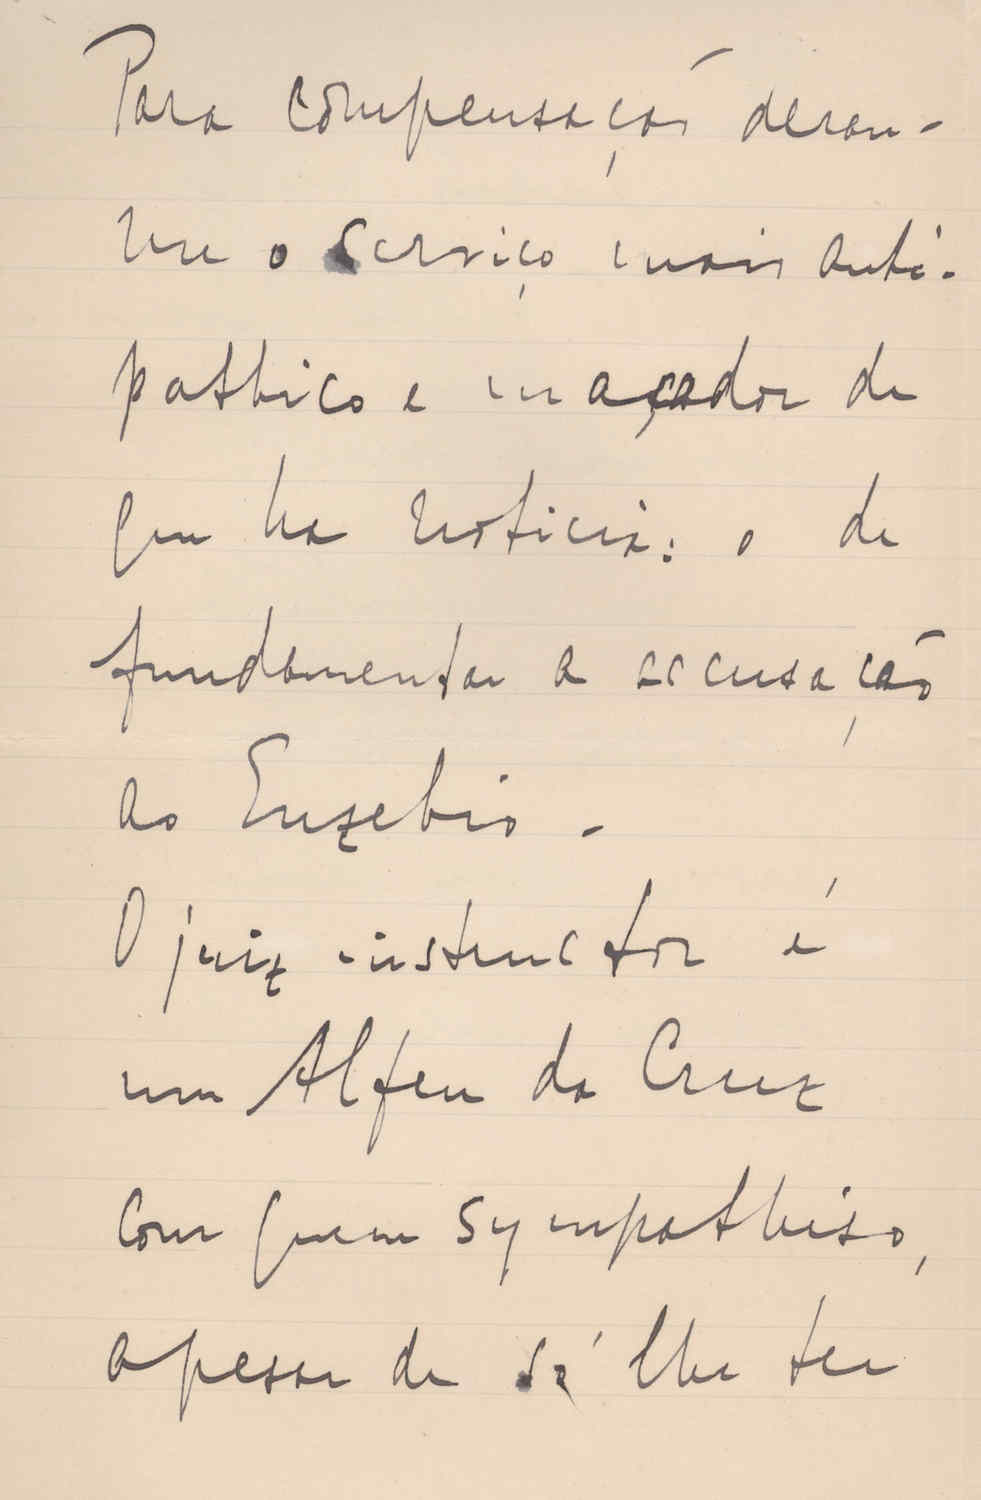 Para compensação deram-
me o serviço mais anti-
pathico e maçador de
que ha noticia: o de
fundamentar a accusação
ao Euzebio.
O juiz instructor é
um Alfeu da Cruz
com quem sympathiso,
apesar de só lhe ter